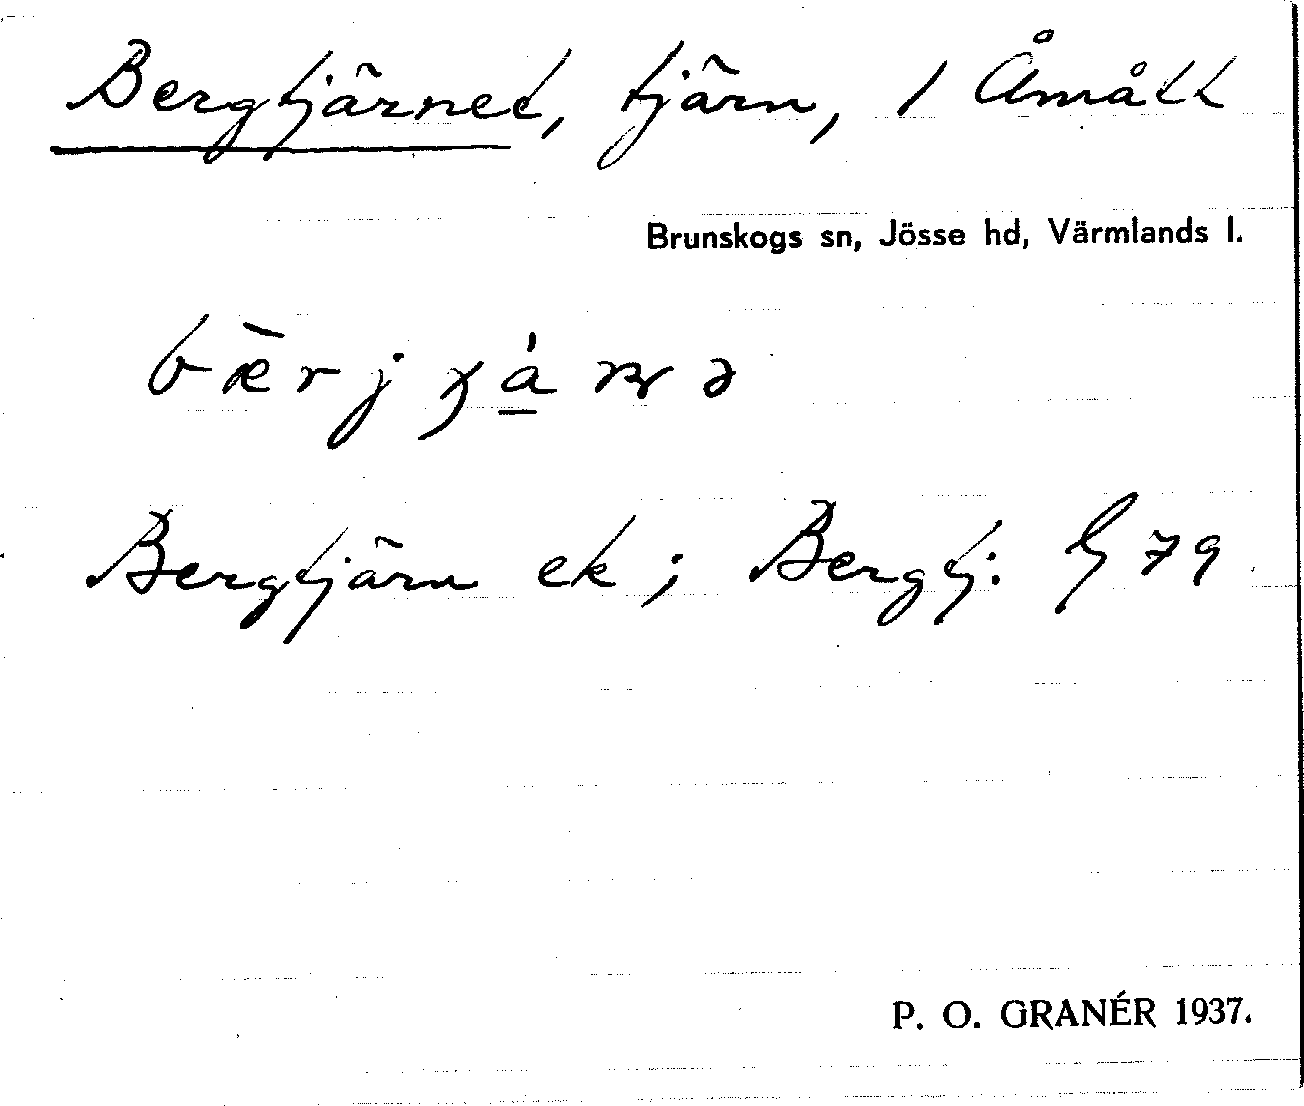 Bergtjärnet, tjärn, / Åmått
Brunskogs sn, Jösse hd, Värmlands l.
Bergtjärn ek; Bergtj. G 79
P. O. GRANÉR 1937.